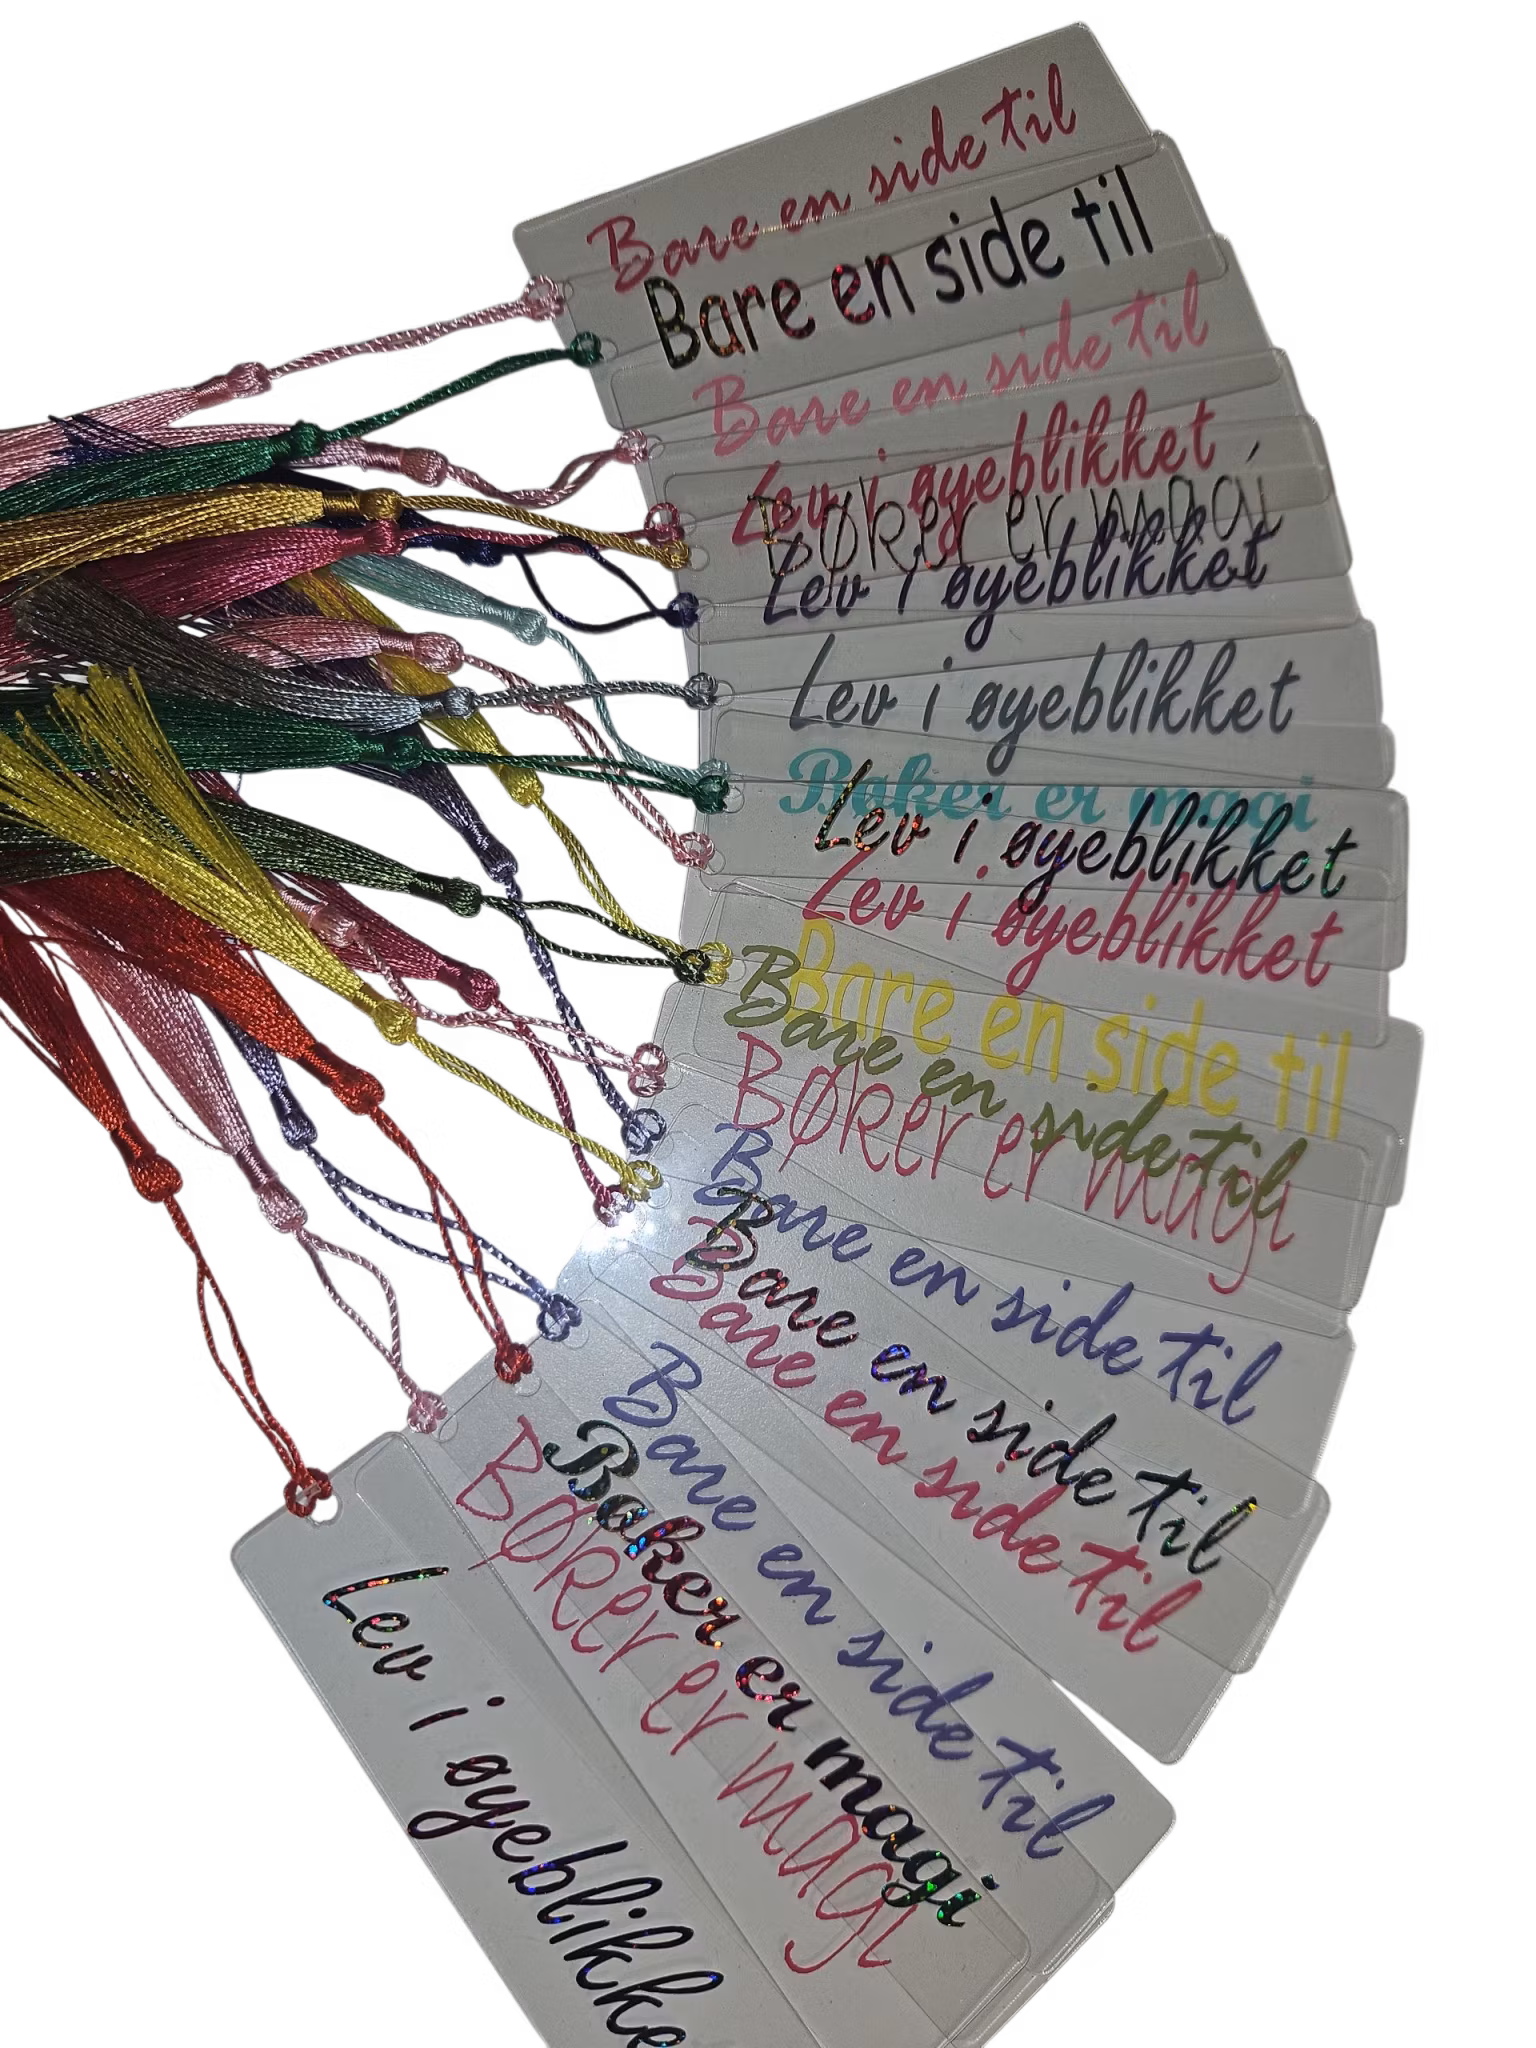 Bare en side til
Bare en side til
Bare en side til
Lev i øyeblikket
Bøker er magi
Lev i øyeblikket
Lev i øyeblikket
Bøker er magi
Lev i øyeblikket
Lev i øyeblikket
Bare en side til
Bare en side til
Bøker er magi
Bare en side til
Bare en side til
Bare en side til
Bare en side til
Bøker er magi
Bøker er magi
Lev i øyeblikke